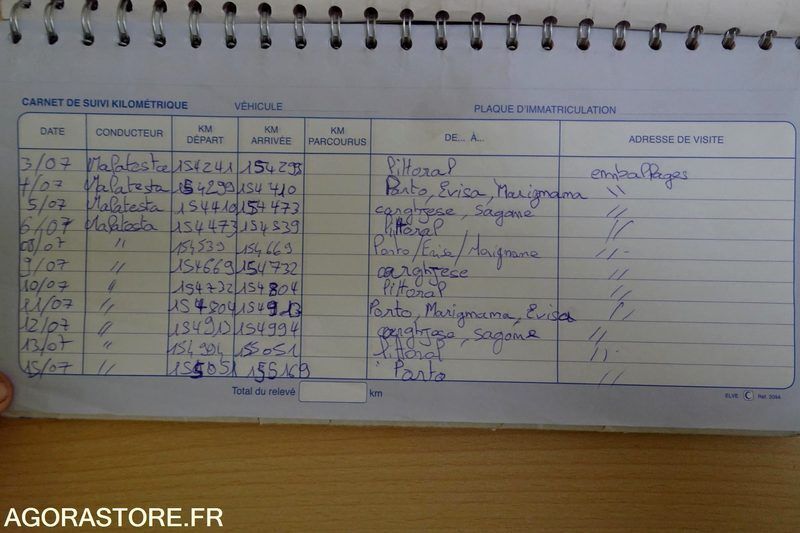 CARNET DE SUIVI KILOMÉTRIQUE VÉHICULE PLAQUE D'IMMATRICULATION
DATE CONDUCTEUR KM DÉPART KM ARRIVÉE KM PARCOURUS DE... À... ADRESSE DE VISITE
3/07 Malatesta 154241 154299 littoral emballages
4/07 Malatesta 154299 154410 Porto, Evisa, Marignana "
5/07 Malatesta 154410 154473 carghjese, Sagone "
6/07 Malatesta 154473 154539 littoral "
08/07 " 154539 154669 Porto/Evisa/Marignane "
9/07 " 154669 154732 carghjese "
10/07 " 154732 154804 littoral "
11/07 " 154804 154913 Porto, Marignana, Evisa "
12/07 " 154913 154994 carghjese, Sagone "
13/07 " 154994 155051 littoral "
15/07 " 155051 155169 Porto "
Total du relevé km
ELVE Réf. 2094
AGORASTORE.FR